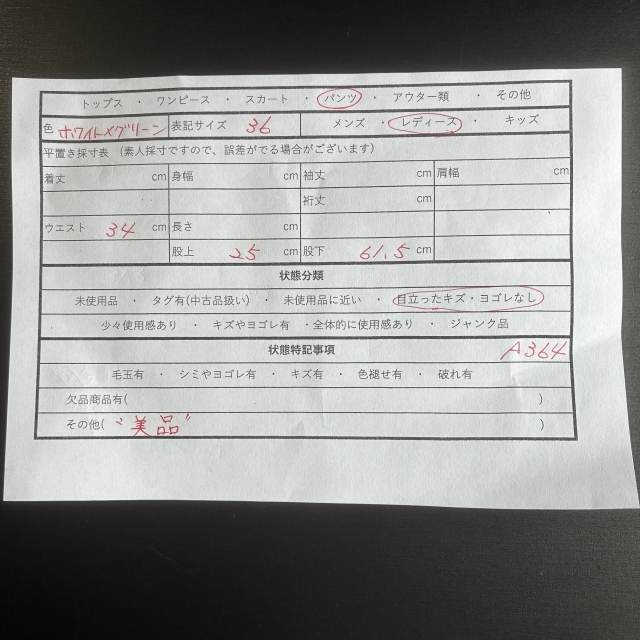 トップス ・ ワンピース ・ スカート ・ パンツ ・ アウター類 ・ その他
色 ホワイト×グリーン 表記サイズ 36 メンズ ・ レディース ・ キッズ
平置き採寸表 (素人採寸ですので、誤差がでる場合がございます)
着丈 cm 身幅 cm 袖丈 cm 肩幅 cm
裄丈 cm
ウエスト 34 cm 長さ cm
股上 25 cm 股下 61.5 cm
状態分類
未使用品 ・ タグ有(中古品扱い) ・ 未使用品に近い ・ 目立ったキズ・ヨゴレなし
少々使用感あり ・ キズやヨゴレ有 ・全体的に使用感あり ・ ジャンク品
状態特記事項 A364
毛玉有 ・ シミやヨゴレ有 ・ キズ有 ・ 色褪せ有 ・ 破れ有
欠品商品有( )
その他( "美品" )